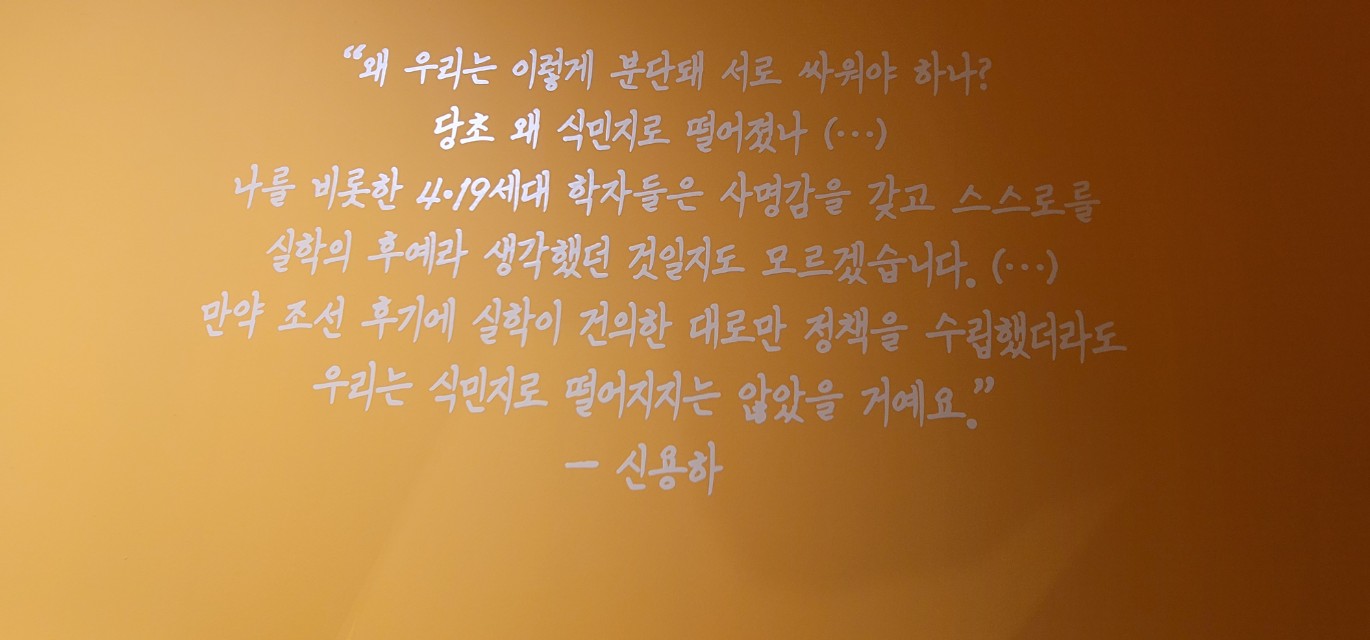 “왜 우리는 이렇게 분단돼 서로 싸워야 하나?
당초 왜 식민지로 떨어졌나 (···)
나를 비롯한 4·19세대 학자들은 사명감을 갖고 스스로를
실학의 후예라 생각했던 것일지도 모르겠습니다. (···)
만약 조선 후기에 실학이 건의한 대로만 정책을 수립했더라도
우리는 식민지로 떨어지지는 않았을 거예요.”
— 신용하